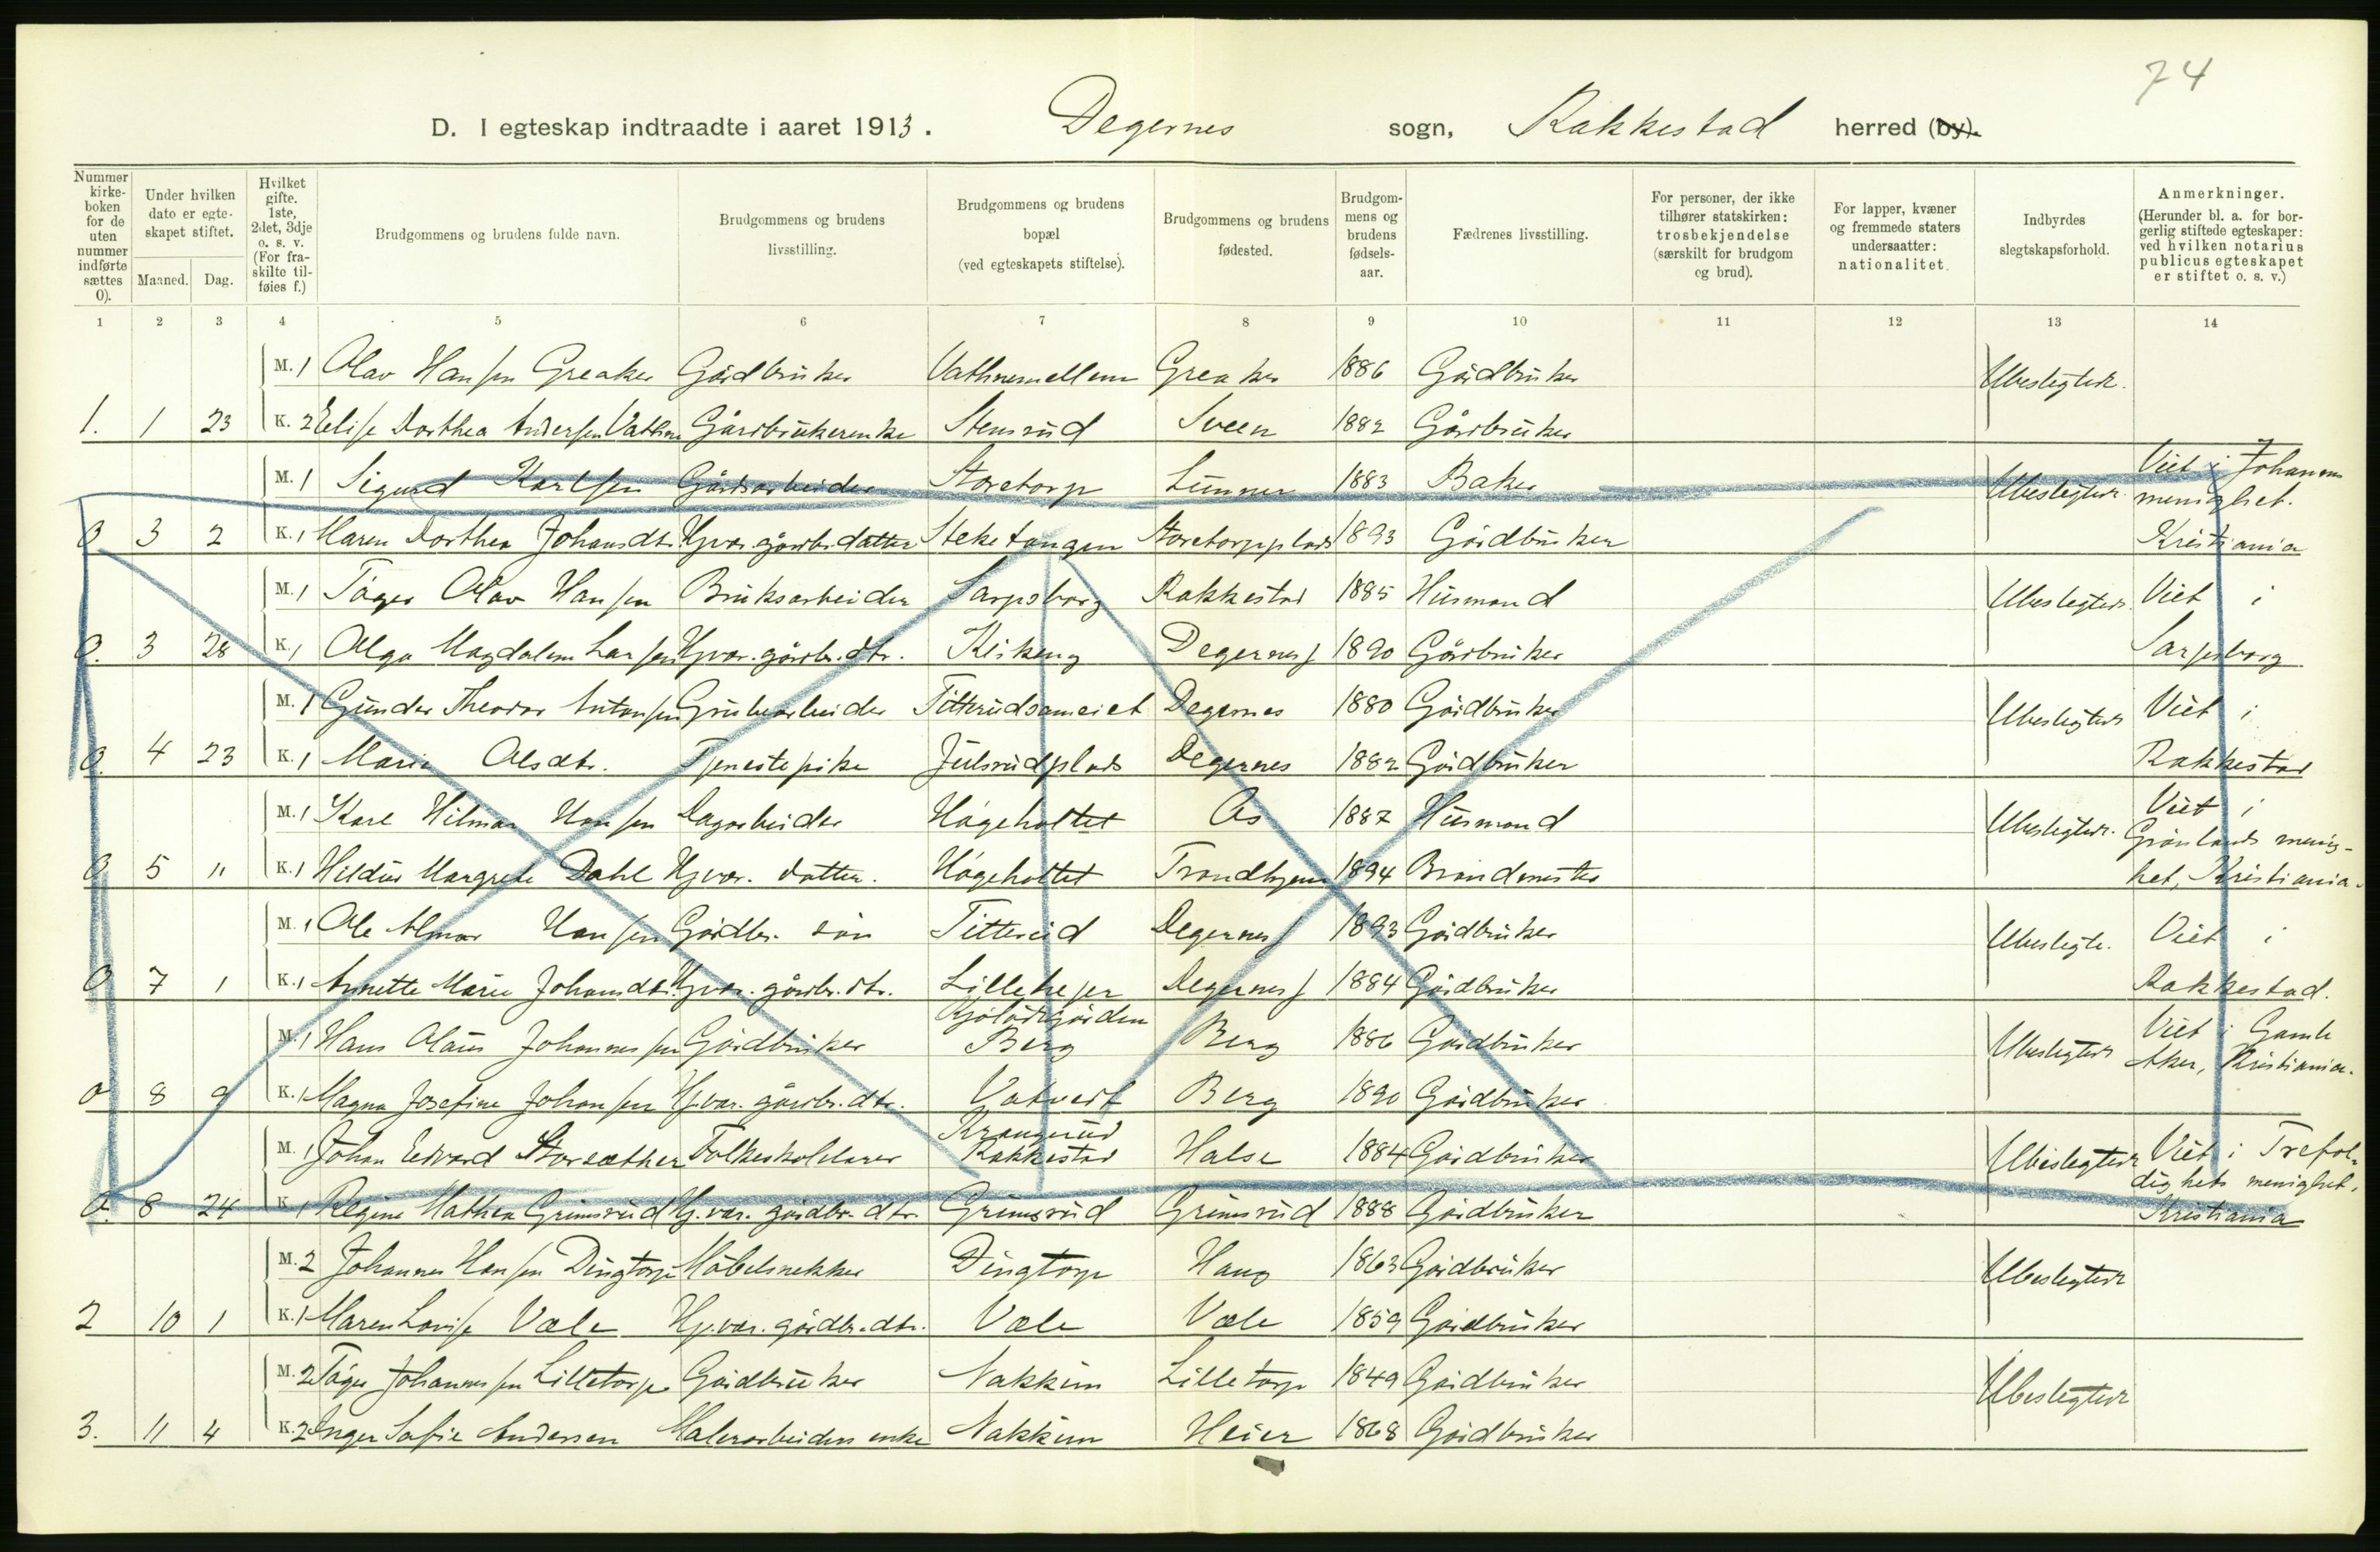 74
D. I egteskap indtraadte i aaret 1913. Degernes sogn, Rakkestad herred (by).
Nummer kirkeboken for de uten nummer indførte sættes 0).
Under hvilken dato er egteskapet stiftet.
Maaned. Dag.
Hvilket gifte. 1ste, 2det, 3dje o. s. v. (For fraskilte tilføies f.)
Brudgommens og brudens fulde navn.
Brudgommens og brudens livsstilling.
Brudgommens og brudens bopæl (ved egteskapets stiftelse).
Brudgommens og brudens fødested.
Brudgommens og brudens fødselsaar.
Fædrenes livsstilling.
For personer, der ikke tilhører statskirken: trosbekjendelse (særskilt for brudgom og brud).
For lapper, kvæner og fremmede staters undersaatter: nationalitet.
Indbyrdes slegtskapsforhold.
Anmerkninger. (Herunder bl. a. for borgerlig stiftede egteskaper: ved hvilken notarius publicus egteskapet er stiftet o. s. v.)
1 2 3 4 5 6 7 8 9 10 11 12 13 14
M. 1 Olav Hansen Greaker Gårdbruker Vathnemellem Greaker 1886 Gårdbruker Ubeslegtede.
1. 1 23 K. 2 Elise Dorthea Andersen Vathne Gårdbrukerenke Stensrud Sveen 1882 Gårdbruker
M. 1 Sigurd Karlsen Gårdsarbeider Storetorp Lunner 1883 Baker Ubeslegtede. Viet i Johannes menighet.
0 3 2 K. 1 Maren Dorthea Johansdtr. Hjvær. gårdbr. datter Steketangen Storetorpplads 1893 Gårdbruker Kristiania
M. 1 Tåger Olav Hansen Bruksarbeider Sarpsborg Rakkestad 1885 Husmand Ubeslegtede. Viet i
0. 3 28 K. 1 Olga Magdalene Larsen Hjvær. gårdbr. dtr. Kirkeng Degernes 1890 Gårdbruker Sarpsborg
M. 1 Gunder Theodor Antonsen Grubearbeider Titterudsameiet Degernes 1880 Gårdbruker Ubeslegtede Viet i
0. 4 23 K. 1 Marie Olsdtr. Tjenestepike Julsrudplads Degernes 1882 Gårdbruker Rakkestad
M. 1 Karl Hilmar Hansen Dagarbeider Högeholtet Ås 1887 Husmand Ubeslegtede. Viet i Grönlands menig-
0 5 11 K. 1 Hildur Margrete Dahl Hjvær. datter. Högeholtet Trondhjem 1894 Brandmester het, Kristiania.
M. 1 Ole Almar Hansen Gårdbr. sön Titterud Degernes 1893 Gårdbruker Ubeslegte. Viet i
0 7 1 K. 1 Annette Marie Johansdtr. Hjvær. gårdbr. dtr. Lilleheier Degernes 1884 Gårdbruker Rakkestad.
M. 1 Hans Olaus Johannessen Gårdbruker Berg Berg 1886 Gårdbruker Ubeslegtede Viet i Gamle Aker, Kristiania.
0 8 9 K. 1 Magna Josefine Johansen Hjvær. gårdbr. dtr. Vatvedt Berg 1890 Gårdbruker
M. 1 Johan Edvard Storsæther Folkeskolelærer Krangerud Rakkestad Halse 1884 Gårdbruker Ubeslegtede Viet i Trefol-
dighets menighet,
0. 8 24 K. 1 Regine Mathea Grimsrud Hj.vær. gårdbr. dtr. Grimsrud Grimsrud 1888 Gårdbruker Kristiania
M. 2 Johannes Hansen Dingtorp Möbelsnekker Dingtorp Haug 1863 Gårdbruker Ubeslegtede
2 10 1 K. 1 Maren Lovise Væle Hj.vær. gårdbr. dtr. Væle Væle 1859 Gårdbruker
M. 2 Tåger Johannessen Lilletorp Gårdbruker Nakkim Lilletorp 1849 Gårdbruker Ubeslegtede
3. 11 4 K. 2 Inger Sofie Andersen Malerarbeiders enke Nakkim Heier 1868 Gårdbruker